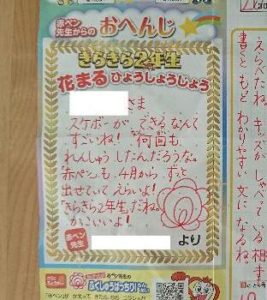 赤ペン
先生からの
おへんじ
きらきら2年生
花まるひょうしょうじょう
さま
スケボーができるなんて
すごいね!何回も
れんしゅうしたんだろうな。
赤ペンも、4月からずっと
出せていてえらいよ!
"きらきら2年生"だね。
かっこいいよ!
赤ペン
先生
より
ふくしゅうばっちり!
えらべたね。キッズがしゃべっている相手も
書くともっとわかりやすい文になるね。